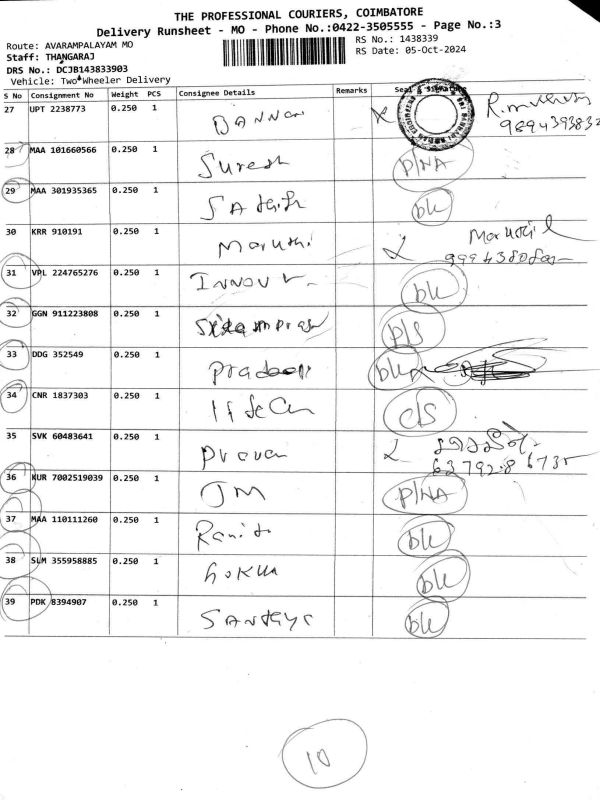 THE PROFESSIONAL COURIERS, COIMBATORE
Delivery Runsheet - MO - Phone No.:0422-3505555 - Page No.:3
Route: AVARAMPALAYAM MO
RS No.: 1438339
Staff: THANGARAJ
RS Date: 05-Oct-2024
DRS No.: DCJB143833903
Vehicle: Two Wheeler Delivery
S No Consignment No Weight PCS Consignee Details Remarks Seal & Signature
27 UPT 2238773 0.250 1 BANNARI
28 MAA 101660566 0.250 1 Suresh P/NA
29 MAA 301935365 0.250 1 SAthish bk
30 KRR 910191 0.250 1 Maruthi
31 VPL 224765276 0.250 1 bk
32 GGN 911223808 0.250 1 P/S
33 DDG 352549 0.250 1 Pradeep bk
34 CNR 1837303 0.250 1 C/S
35 SVK 60483641 0.250 1 Praven
36 KUR 7002519039 0.250 1 JM P/NA
37 MAA 110111260 0.250 1 bk
38 SLM 355958885 0.250 1 Gokul bk
39 PDK 8394907 0.250 1 bk
10